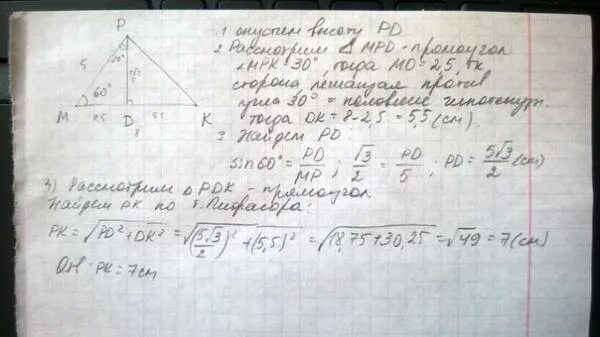 P
5
30°
5√3/2
60°
M 2,5 D 5,5 K
8
1 опустим высоту PD
2 Рассмотрим Δ MPD - прямоугол
∠MPK = 30°, тогда MD = 2,5, тк
сторона, лежащая против
угла 30° = половине гипотенузы.
тогда DK = 8 - 2,5 = 5,5 (см)
3 Найдем PD:
sin 60° = PD/MP ; √3/2 = PD/5 ; PD = 5√3/2 (см)
4) Рассмотрим Δ PDK - прямоугол.
Найдем PK по т. Пифагора:
PK = √(PD² + DK²) = √((5√3/2)² + (5,5)²) = √(18,75 + 30,25) = √49 = 7 (см)
Отв: PK = 7 см